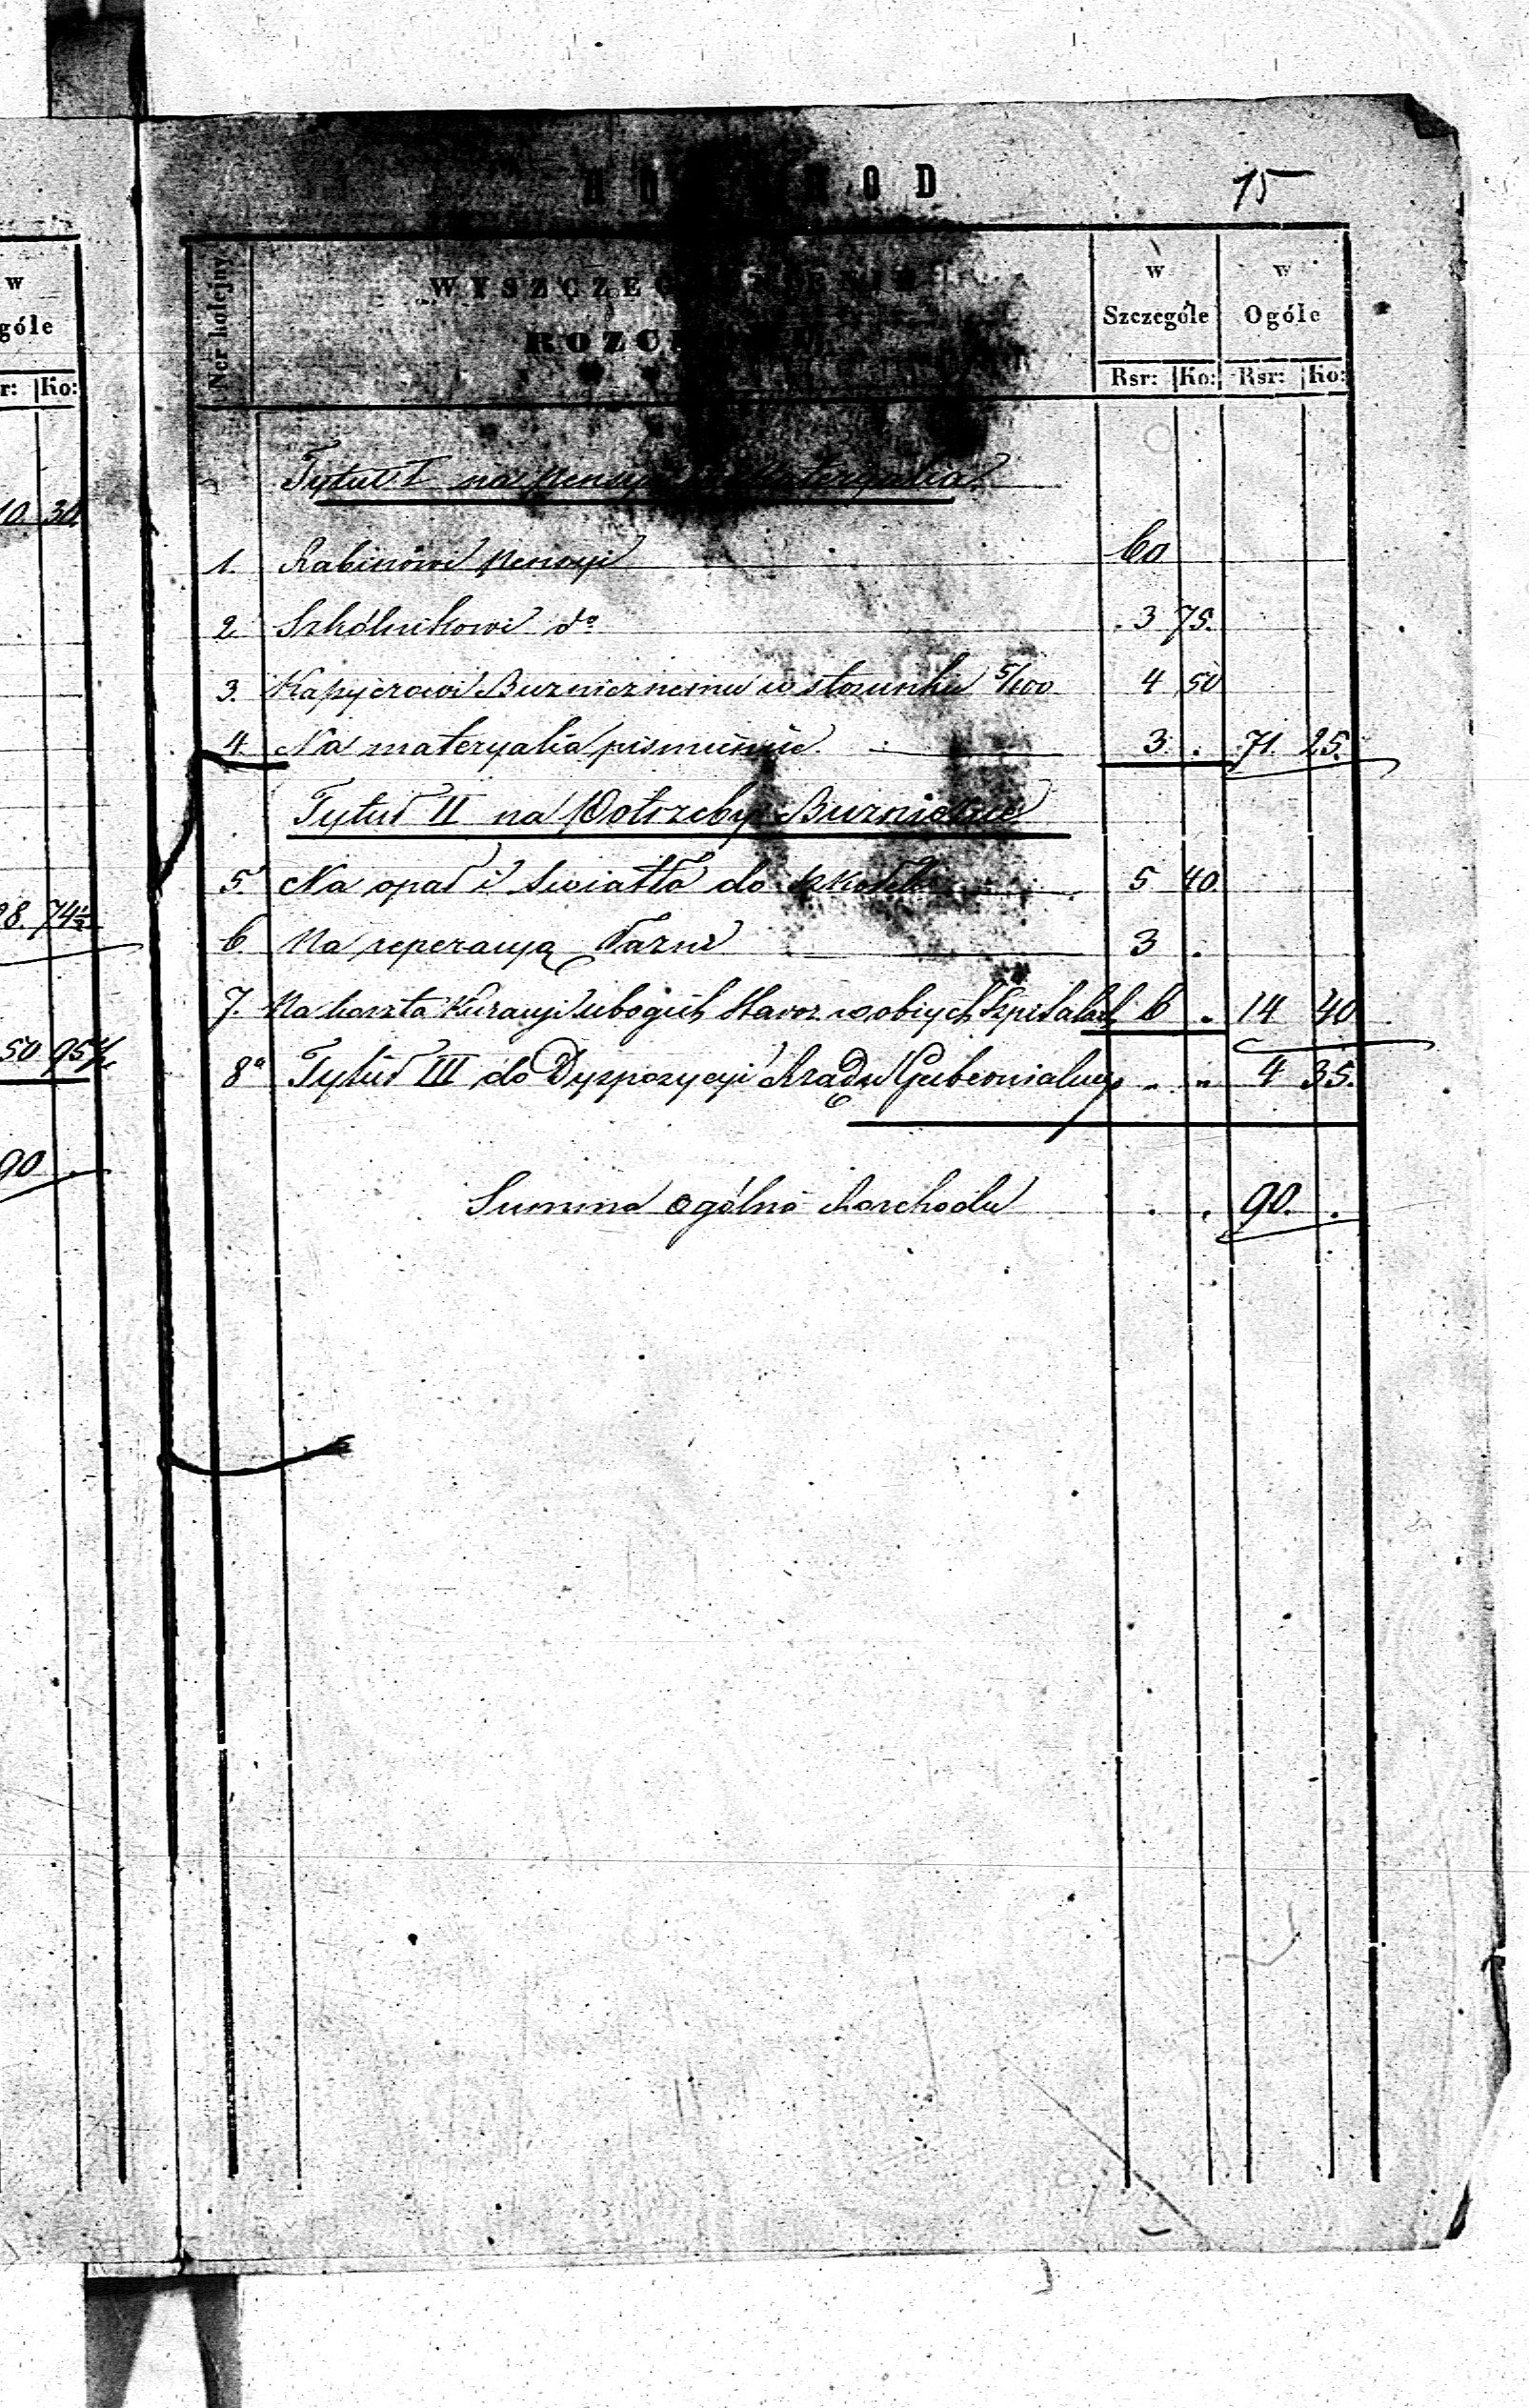 w
góle
r: Ko:
10. 30
28. 74½
50 95½
90 .
ROZCHOD
75
Ner kolejny
WYSZCZEGÓLNIENIE
ROZCHODU
w Szczególe
w Ogóle
Rsr: Ko: Rsr: Ko:
Tytuł I na pensye i Materyalia
1. Rabinowi pensyi 60
2. Szkólnikowi do . 3 75.
3. Kasyerowi Buzniczнemu w stosunku 5/100 4 50
4. Na materyalia pismienne. 3 . 71. 25.
Tytuł II na Potrzeby Buznicze
5. Na opał i światło do szkółki 5 40
6. Na reperacyą Łazni 3 .
7. Na koszta Kuracyi ubogich Staroz. w obcych Szpitalach 6 . 14 40
8. Tytuł III do Dyspozycyi Rządu Gubernialnego . " 4 35.
Summa ogólna Rozchodu . . 90. .